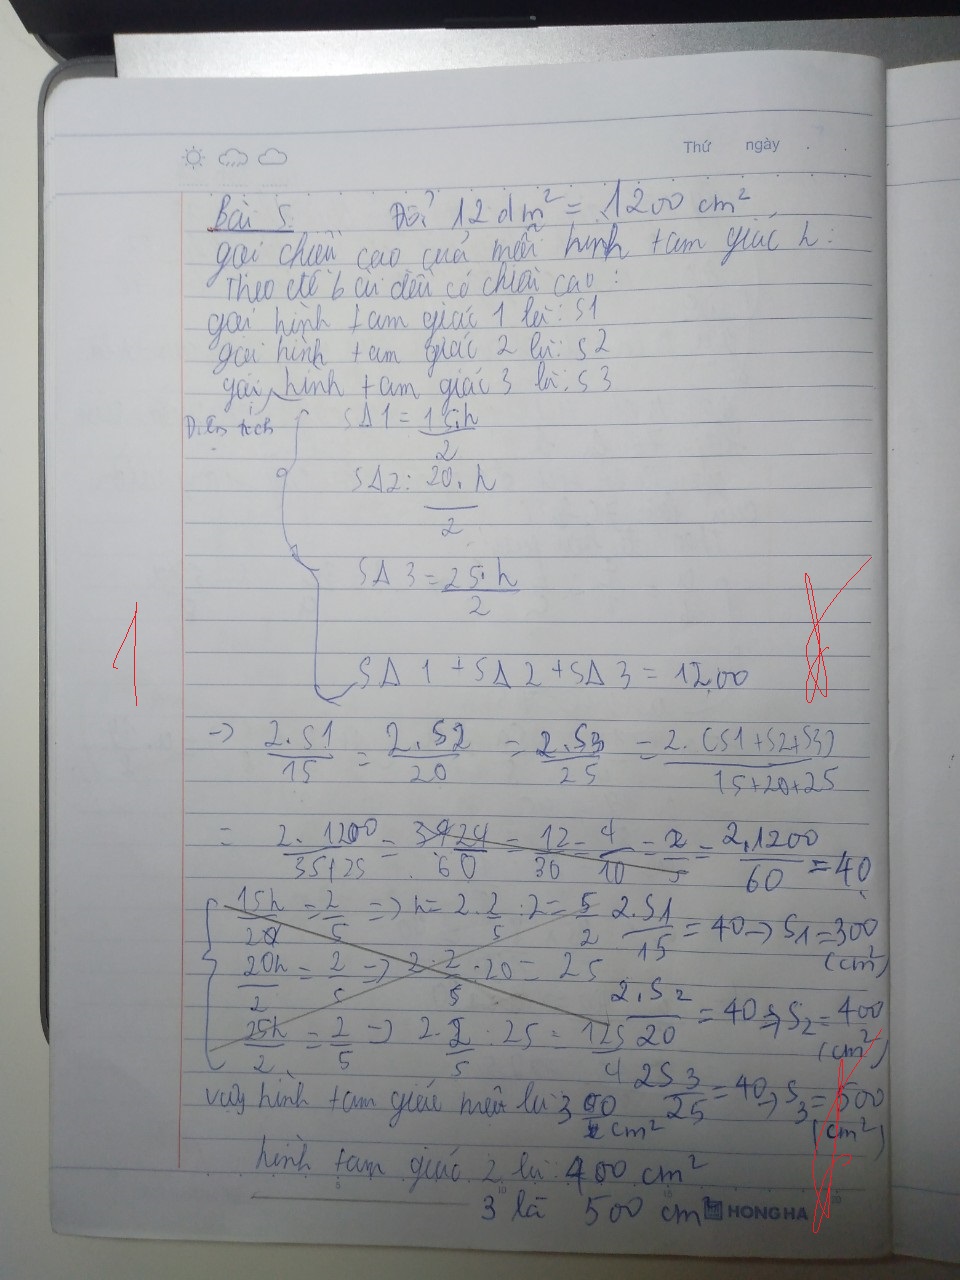 Thứ ngày
Bài 5 Đổi 12 dm² = 1200 cm²
gọi chiều cao của mỗi hình tam giác h:
Theo đề bài đều có chiều cao:
gọi hình tam giác 1 là: S1
gọi hình tam giác 2 là: S2
gọi hình tam giác 3 là: S3
Diện tích SΔ1 = 15.h/2
SΔ2: 20.h/2
SΔ3 = 25.h/2
1
SΔ1 + SΔ2 + SΔ3 = 1200
→ 2.S1/15 = 2.S2/20 = 2.S3/25 = 2.(S1+S2+S3)/15+20+25
= 2.1200/35+25 = 24/60 = 12/30 = 4/10 = 2/5 = 2.1200/60 = 40
15h/2 = 2/5 => h = 2.2/5.2 = 5/2 2.S1/15 = 40 → S1 = 300 (cm²)
20h/2 = 2/5 → 2.2/5.20 = 25 2.S2/20 = 40 → S2 = 400 (cm²)
25h/2 = 2/5 → 2.2/5.25 = 125/4 2S3/25 = 40 → S3 = 500 (cm²)
vậy hình tam giác một là 300 cm²
hình tam giác 2 là: 400 cm²
3 là 500 cm²
HONG HA